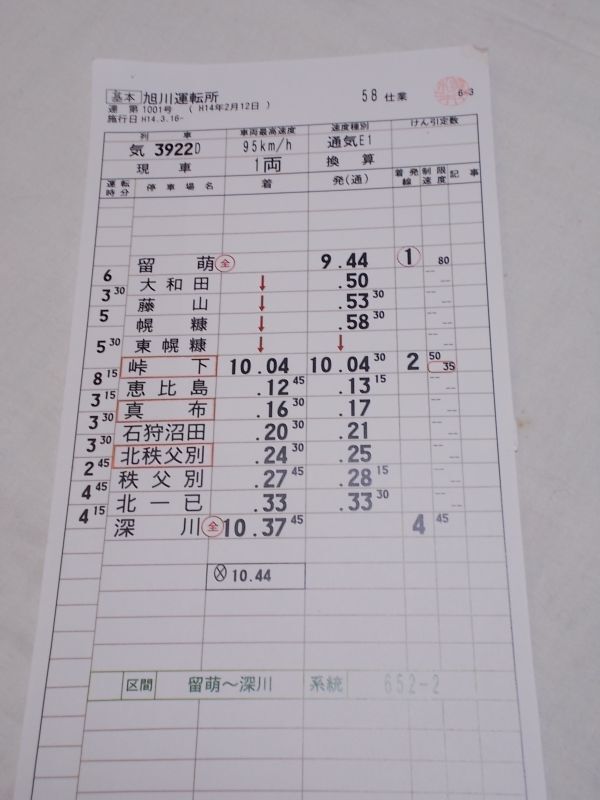 基本 旭川運転所 58 仕業 6-3
運 第 1001号 ( H14年2月12日 )
施行日 H14.3.16-
列 車 車両最高速度 速度種別 けん引定数
気 3922D 95km/h 通気E1
現 車 1両 換 算
運転時分 停 車 場 名 着 発(通) 着発線 制限速度 記 事
留 萌 全 9.44 1 80
6
大 和 田 ↓ .50
3 30
藤 山 ↓ .53 30
5
幌 糠 ↓ .58 30
東 幌 糠 ↓ ↓
5 30
峠 下 10.04 10.04 30 2 50 35
8 15
恵 比 島 .12 45 .13 15
3 15
真 布 .16 30 .17
3 30
石狩沼田 .20 30 .21
3 30
北秩父別 .24 30 .25
2 45
秩 父 別 .27 45 .28 15
4 45
北 一 已 .33 .33 30
4 15
深 川 全 10.37 45 4 45
10.44
区間 留萌～深川 系統 652-2